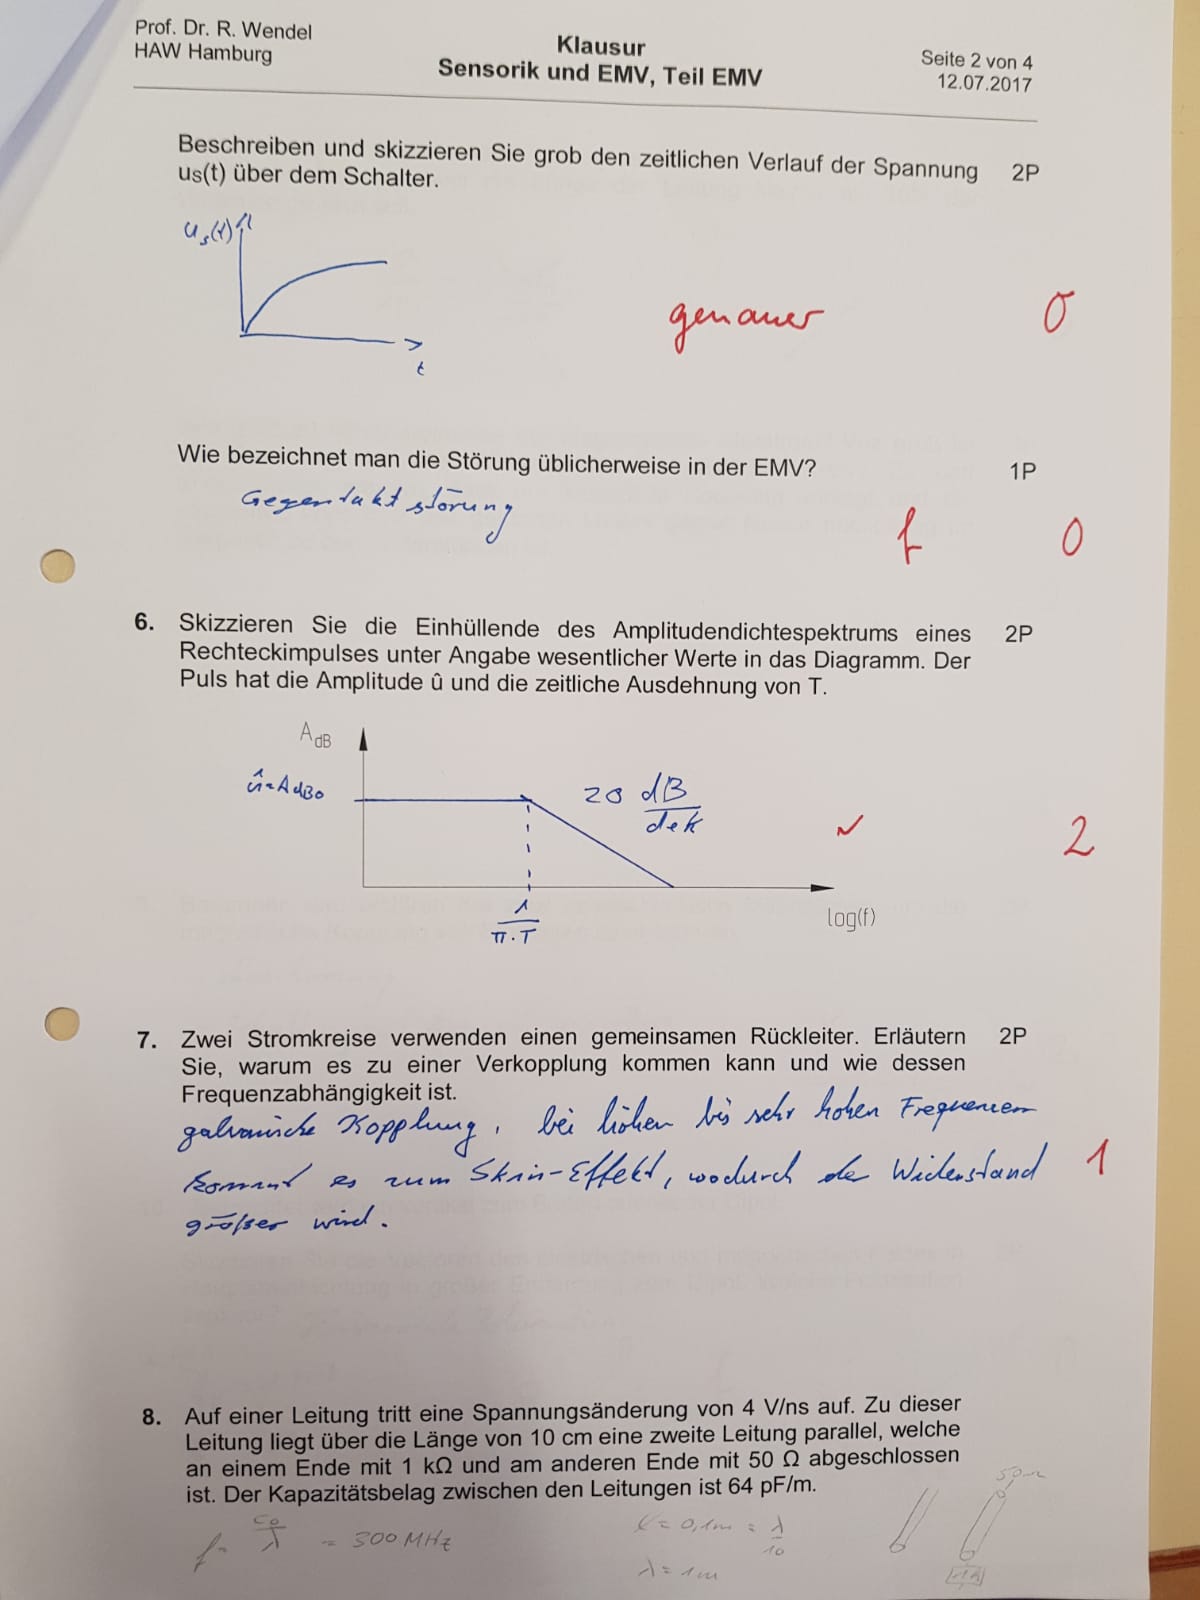 Prof. Dr. R. Wendel
HAW Hamburg
Klausur
Sensorik und EMV, Teil EMV
Seite 2 von 4
12.07.2017
Beschreiben und skizzieren Sie grob den zeitlichen Verlauf der Spannung 2P
us(t) über dem Schalter.
us(t)
genauer 0
t
Wie bezeichnet man die Störung üblicherweise in der EMV? 1P
Gegentaktstörung
f 0
6. Skizzieren Sie die Einhüllende des Amplitudendichtespektrums eines 2P
Rechteckimpulses unter Angabe wesentlicher Werte in das Diagramm. Der
Puls hat die Amplitude û und die zeitliche Ausdehnung von T.
AdB
û=AdB0
20 dB/dek
✓ 2
1/π·T
log(f)
7. Zwei Stromkreise verwenden einen gemeinsamen Rückleiter. Erläutern 2P
Sie, warum es zu einer Verkopplung kommen kann und wie dessen
Frequenzabhängigkeit ist.
galvanische Kopplung, bei hohen bis sehr hohen Frequenzen
kommt es zum Skin-Effekt, wodurch der Widerstand 1
größer wird.
8. Auf einer Leitung tritt eine Spannungsänderung von 4 V/ns auf. Zu dieser
Leitung liegt über die Länge von 10 cm eine zweite Leitung parallel, welche
an einem Ende mit 1 kΩ und am anderen Ende mit 50 Ω abgeschlossen
ist. Der Kapazitätsbelag zwischen den Leitungen ist 64 pF/m.
50Ω
f = c0/λ = 300 MHz
l = 0,1m = λ/10
λ = 1m